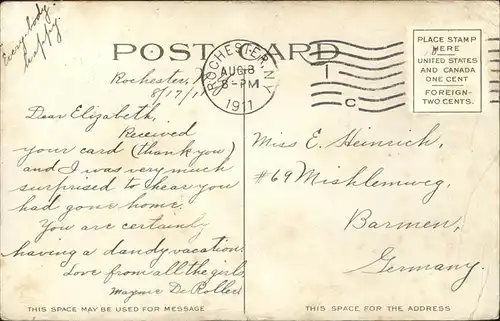 Everybody
happy.
POST CARD
ROCHESTER, N.Y.
AUG 8
8-PM
1911
1
C
PLACE STAMP
HERE
UNITED STATES
AND CANADA
ONE CENT
FOREIGN-
TWO CENTS.
Rochester,
8/17/11
Dear Elizabeth,
Received
your card (thank you)
and I was very much
surprised to hear you
had gone home.
You are certainly
having a dandy vacation.
Love from all the girls
Mayme De Roller
Miss E. Heinrich,
#69 Mishlemweg,
Barmen,
Germany.
THIS SPACE MAY BE USED FOR MESSAGE
THIS SPACE FOR THE ADDRESS